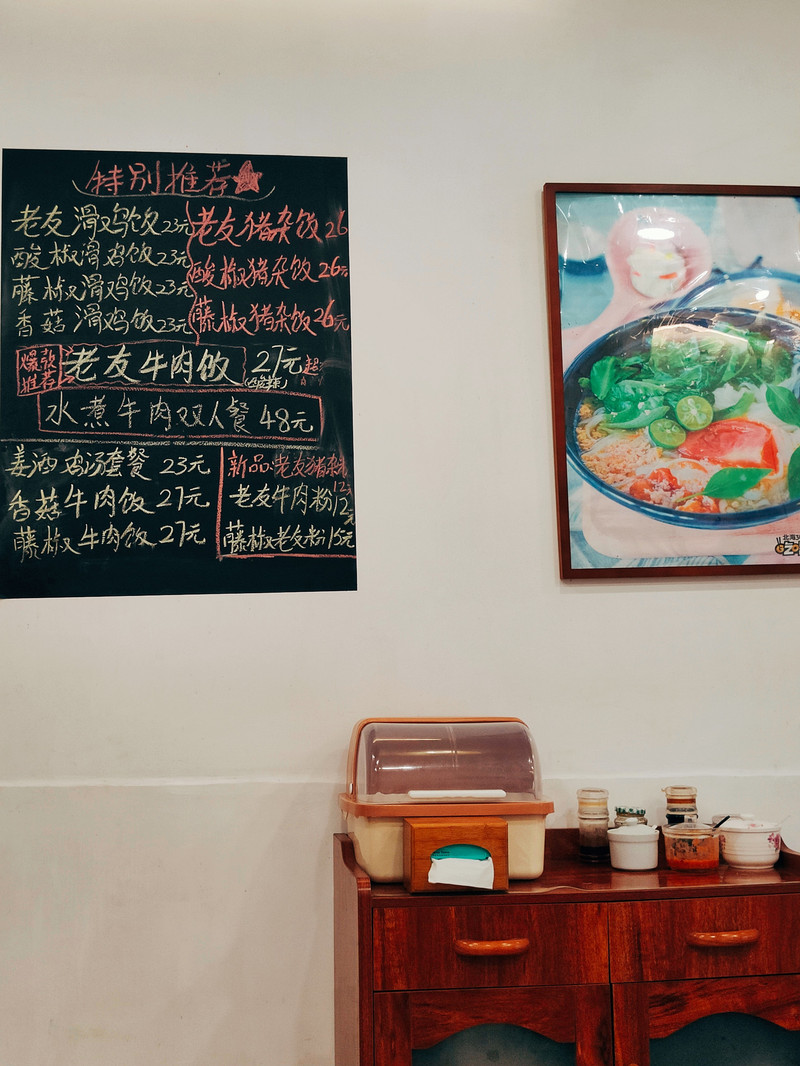 特别推荐
老友滑鸡饭23元
酸椒滑鸡饭23元
藤椒滑鸡饭23元
香菇滑鸡饭23元
老友猪杂饭26
酸椒猪杂饭26元
藤椒猪杂饭26元
爆款
推荐
老友牛肉饭 27元
水煮牛肉双人餐 48元
姜酒鸡汤套餐 23元
香菇牛肉饭 27元
藤椒牛肉饭 27元
新品:老友猪杂
12元
老友牛肉粉12元
藤椒老友粉15元